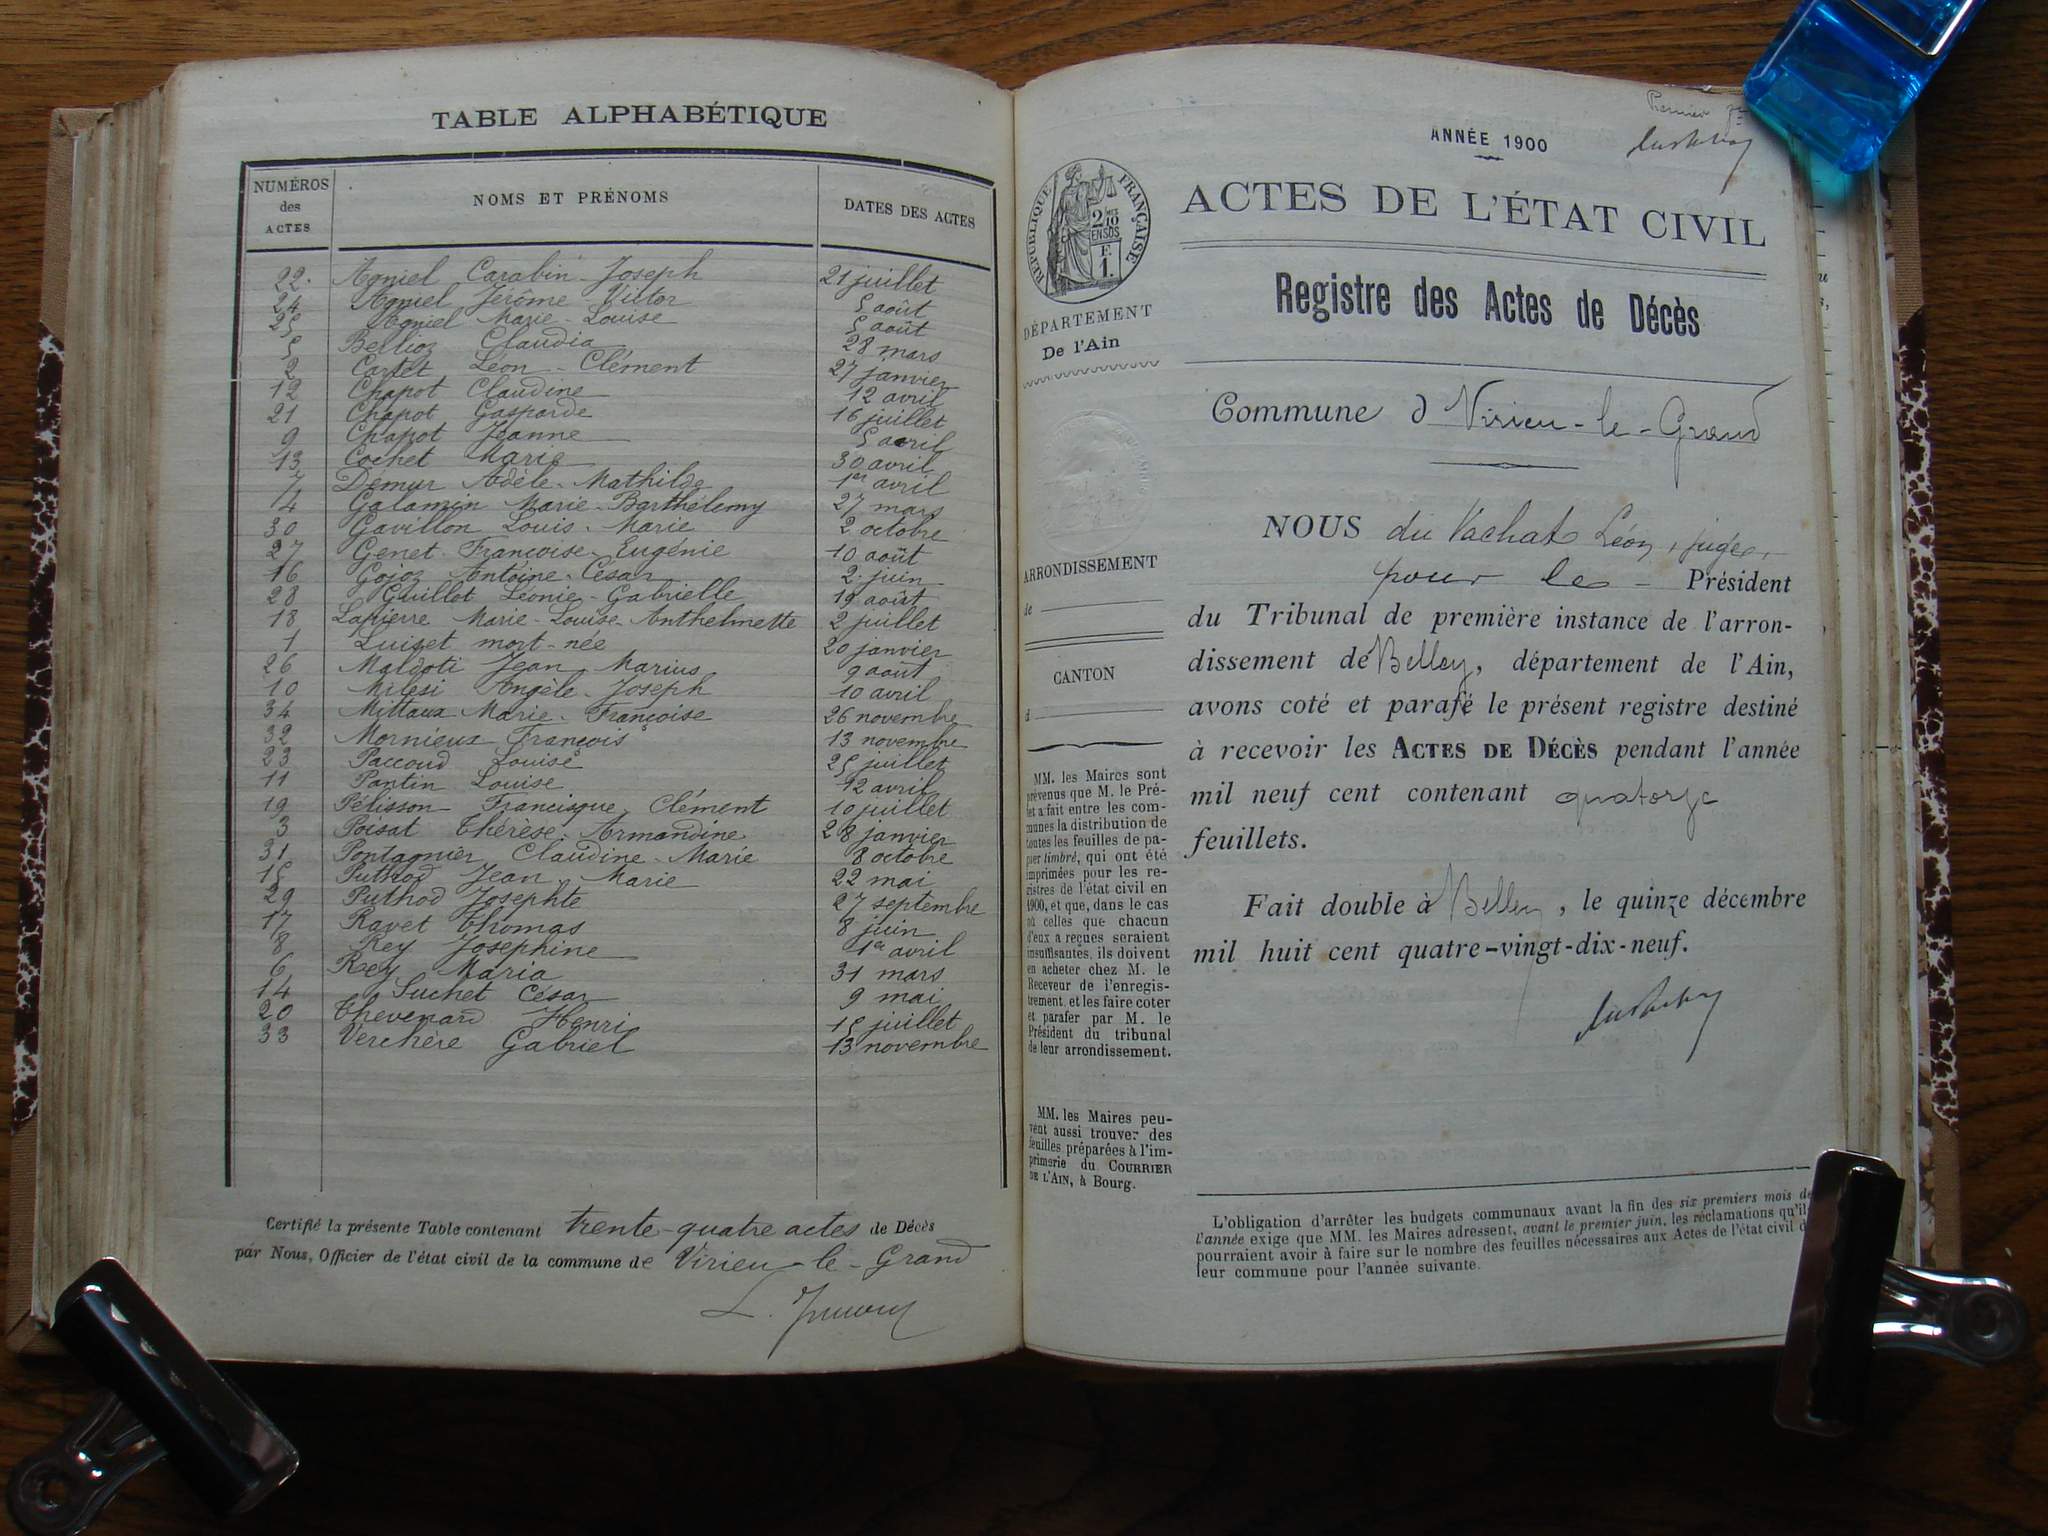 TABLE ALPHABÉTIQUE
NUMÉROS des ACTES NOMS ET PRÉNOMS DATES DES ACTES
22. Agniel Carabin Joseph 21 juillet
24 Agniel Jérôme Victor 5 août
25 Agniel Marie-Louise 5 août
5 Bellioz Claudia 28 mars
2 Cartet Léon-Clément 27 janvier
12 Chapot Claudine 12 avril
21 Chapot Gasparde 16 juillet
9 Chapot Jeanne 5 avril
13 Cochet Marie 30 avril
7 Demur Adèle-Mathilde 1er avril
4 Galamin Marie-Barthélemy 27 mars
30 Gavillon Louis-Marie 2 octobre
27 Genet Françoise-Eugénie 10 août
16 Gojoz Antoine-César 2 juin
28 Guillot Léonie-Gabrielle 19 août
18 Lapierre Marie-Louise-Anthelmette 2 juillet
1 Luizet mort-née 20 janvier
26 Maldoti Jean Marius 9 août
10 Milesi Angèle-Joseph 10 avril
34 Mittaux Marie-Françoise 26 novembre
32 Mornieux François 13 novembre
23 Paccoud Louise 25 juillet
11 Pantin Louise 12 avril
19 Pélisson Francisque Clément 10 juillet
3 Poisat Thérèse-Armandine 28 janvier
31 Pontagnier Claudine-Marie 8 octobre
15 Puthod Jean-Marie 22 mai
29 Puthod Josephte 27 septembre
17 Ravet Thomas 8 juin
8 Rey Joséphine 1er avril
6 Rey Maria 31 mars
14 Suchet César 9 mai
20 Thevenard Henri 15 juillet
33 Verchère Gabriel 13 novembre
Certifié la présente Table contenant trente-quatre actes de Décès
par Nous, Officier de l'état civil de la commune de Virieu-le-Grand
Premier
ANNÉE 1900
ACTES DE L'ÉTAT CIVIL
Registre des Actes de Décès
RÉPUBLIQUE FRANÇAISE
2/10
EN SUS
F
1.
DÉPARTEMENT
De l'Ain
ARRONDISSEMENT
de
CANTON
d
MM. les Maires sont
prévenus que M. le Pré-
fet a fait entre les com-
munes la distribution de
toutes les feuilles de pa-
pier timbré, qui ont été
imprimées pour les re-
gistres de l'état civil en
1900, et que, dans le cas
où celles que chacun
d'eux a reçues seraient
insuffisantes, ils doivent
en acheter chez M. le
Receveur de l'enregis-
trement et les faire coter
et parafer par M. le
Président du tribunal
de leur arrondissement.
MM. les Maires peu-
vent aussi trouver des
feuilles préparées à l'im-
primerie du COURRIER
DE L'AIN, à Bourg.
Commune d Virieu-le-Grand
NOUS du Vachat Léon, juge,
pour le Président
du Tribunal de première instance de l'arron-
dissement de Belley, département de l'Ain,
avons coté et parafé le présent registre destiné
à recevoir les ACTES DE DÉCÈS pendant l'année
mil neuf cent contenant quatorze
feuillets.
Fait double à Belley, le quinze décembre
mil huit cent quatre-vingt-dix-neuf.
L'obligation d'arrêter les budgets communaux avant la fin des six premiers mois de
l'année exige que MM. les Maires adressent, avant le premier juin, les réclamations qu'il
pourraient avoir à faire sur le nombre des feuilles nécessaires aux Actes de l'état civil d
leur commune pour l'année suivante.